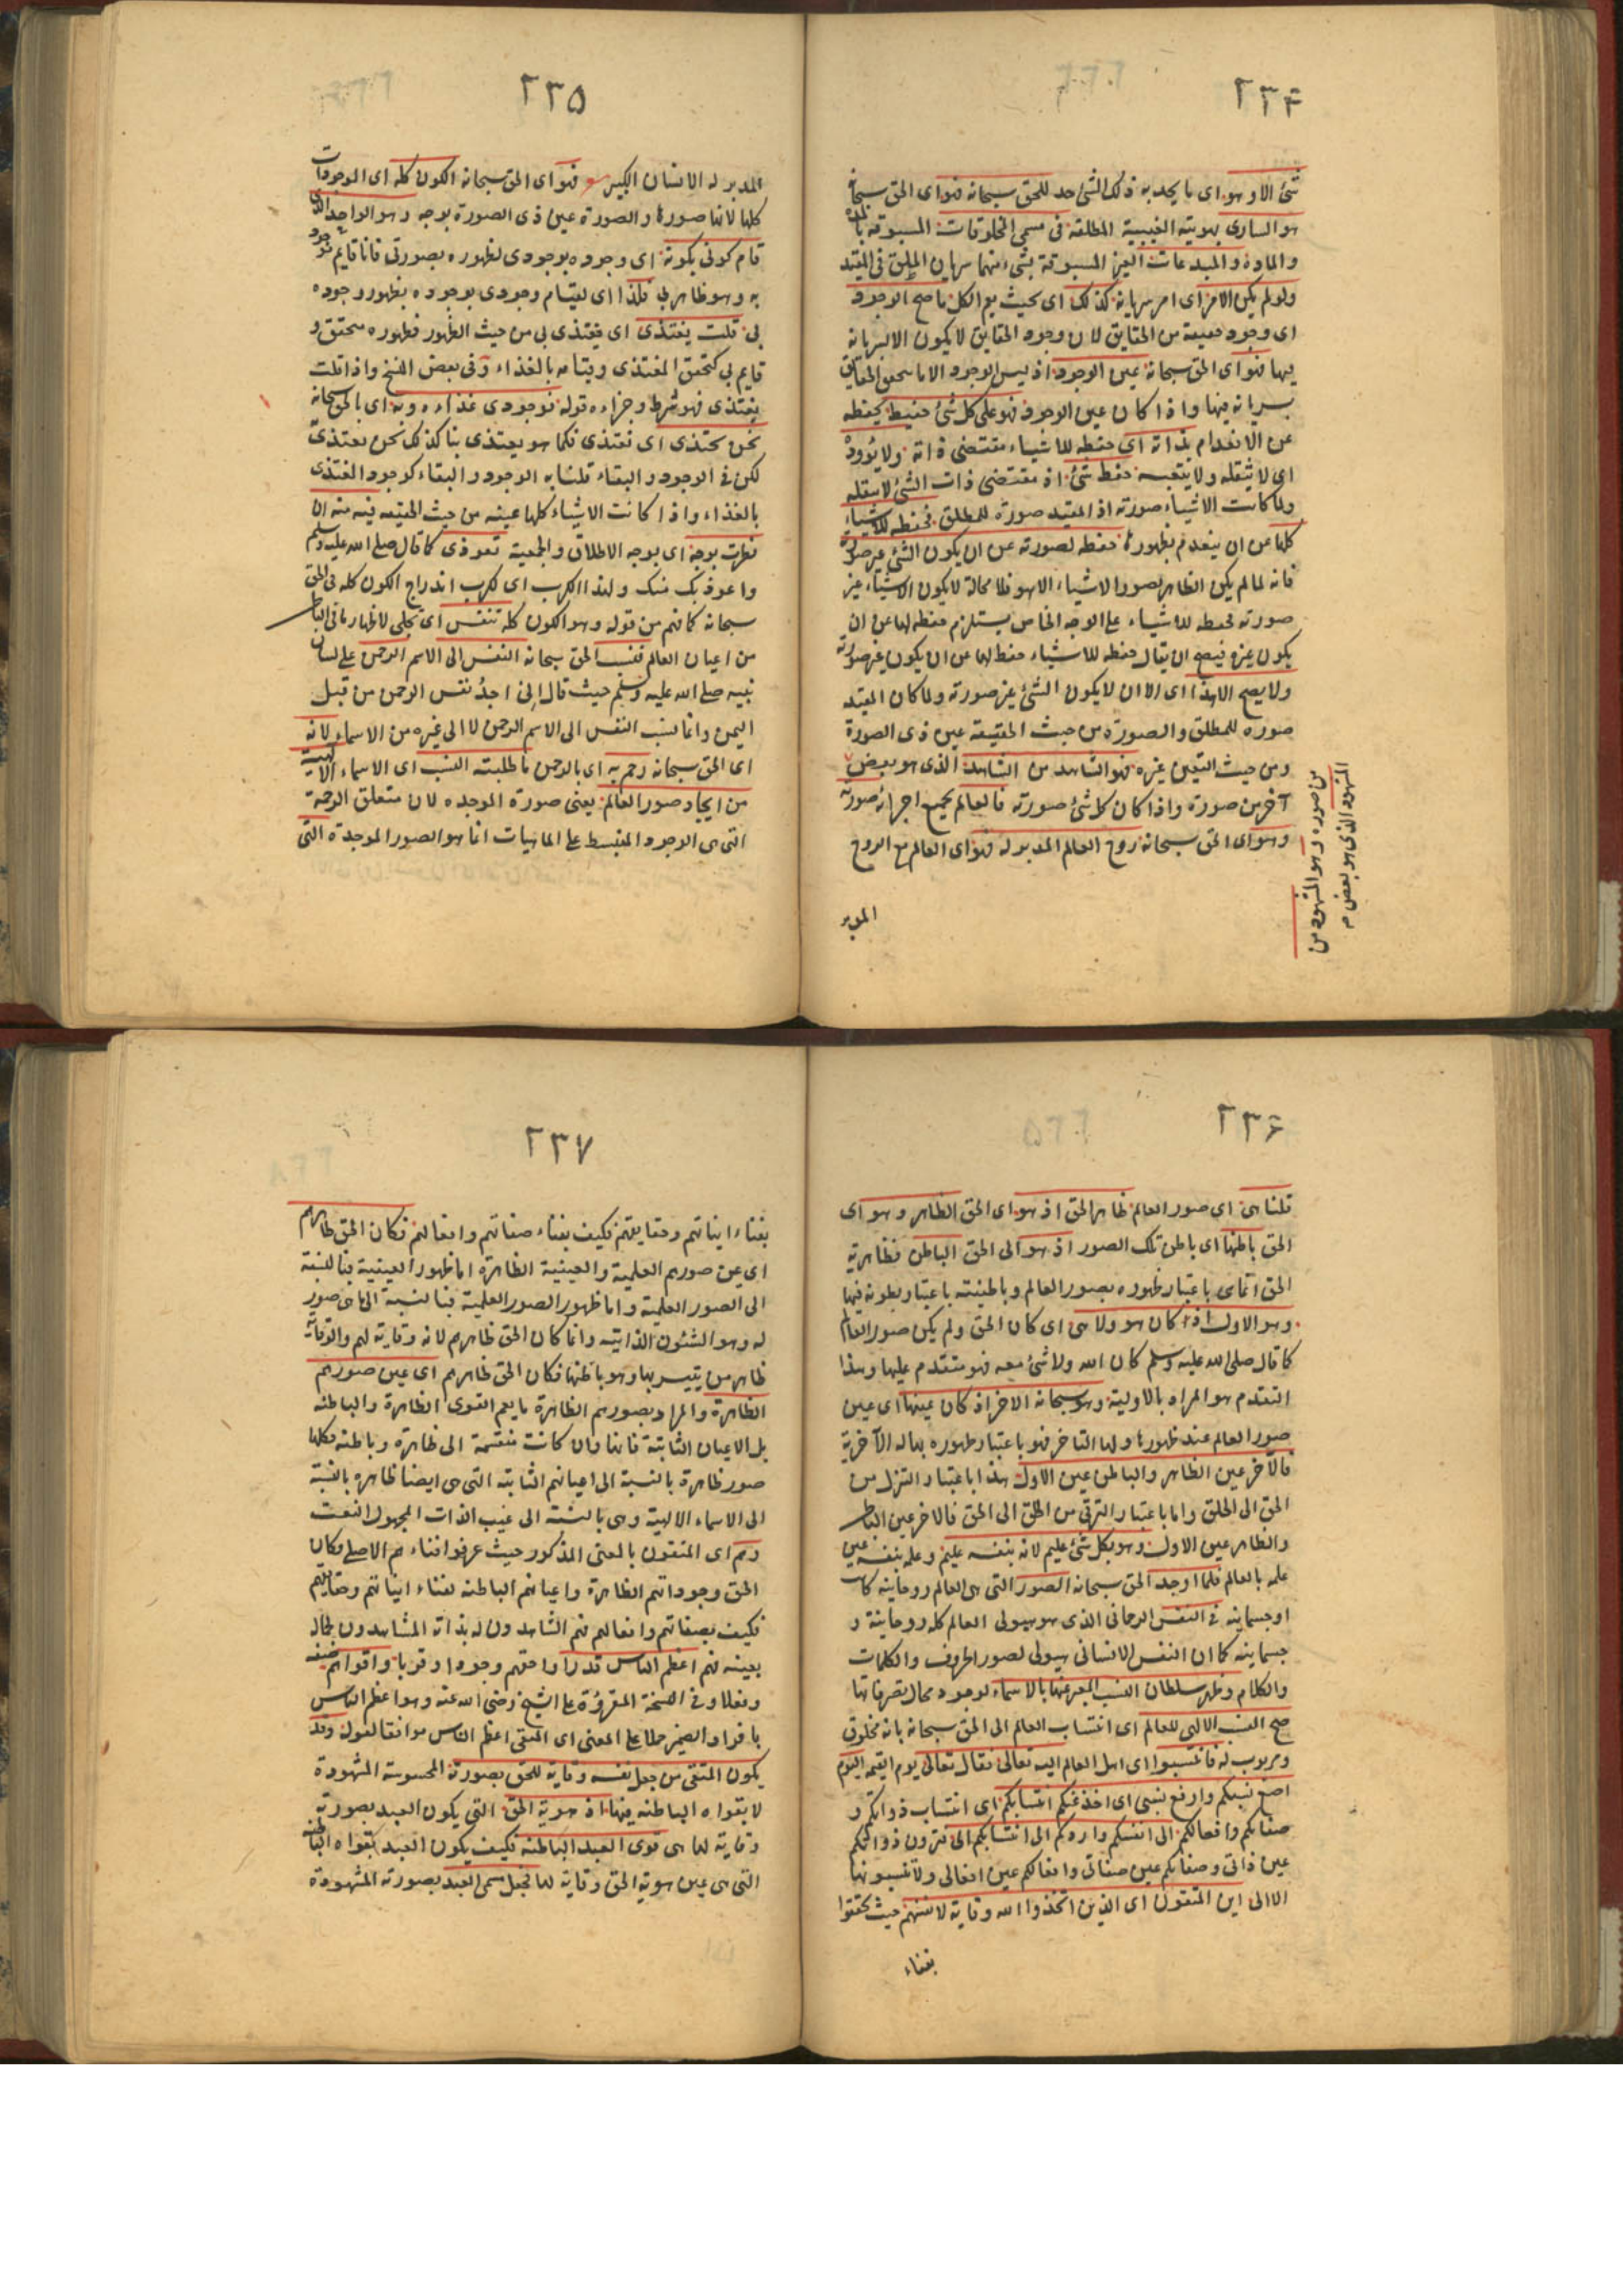 ٢٣٤
شئ الا وهو اى ما يحد به ذلك الشئ حد للحق سبحانه فهو اى الحق سبحانه
هو السارى بهويته الغيبية المطلقة فى مسمى المخلوقات المسبوقة بالمدة
والمادة والمبدعات الغير المسبوقة بشئ منهما سريان المطلق فى المقيد
ولو لم يكن الامر اى امر سريانه كذلك اى بحيث يعم الكل ما صح الوجود
اى وجود حقيقة من الحقايق لان وجود الحقايق لا يكون الا بسريانه
فيها فهو اى الحق سبحانه عين الوجود اذ ليس الوجود الا ما تتحقق الحقايق
بسريانه فيها واذا كان عين الوجود فهو على كل شئ حفيظ يحفظه
عن الانعدام بذاته اى حفظه للاشياء مقتضى ذاته ولا يؤوده
اى لا يثقله ولا يتعبه حفظ شئ اذ مقتضى ذات الشئ لا يثقله
ولما كانت الاشياء صورته اذ المقيد صورة للمطلق فحفظه للاشياء
كلها عن ان ينعدم بظهوره حفظه لصورته عن ان يكون الشئ غير صورته
فانه لما لم يكن الظاهر بصور الاشياء الا هو فلا محالة لا يكون الاشياء غير
صورته فحفظه للاشياء على الوجه الخاص يستلزم حفظه لها عن ان
يكون غيره فيصح ان يقال حفظه للاشياء حفظ لها عن ان يكون غير صورته
ولا يصح الا هذا اى الا ان لا يكون الشئ غير صورته ولما كان المقيد
صورة للمطلق والصورة من حيث الحقيقة عين ذى الصورة
ومن حيث التعين غيره فهو الشاهد من الشاهد الذى هو بعض
آخر من صورة واذا كان كل شئ صورته فالعالم بجميع اجزائه صورته
وهو اى الحق سبحانه روح العالم المدبر له فهو اى العالم مع الروح
من صوره وهو المشهود من
المشهود الذى هو بعض م
المدبر
٢٣٥
المدبر له الانسان الكبير فهو اى الحق سبحانه الكون كله اى الموجودات
كلها لانها صورها والصورة عين ذى الصورة بوجه وهو الواحد الذى
قام كونى بكونه اى وجوده بوجودى لظهوره بصورتى فانا قايم بوجوده
به وهو ظاهر بى فلذا اى لقيام وجودى بوجوده بظهور وجوده
بى قلت يغتذى اى يغتذى بى من حيث الظهور فظهوره متحقق و
قايم بى كتحقق المغتذى وقيامه بالغذاء وفى بعض النسخ واذا قلت
يغتذى فهو شرط وجزاءه قوله فوجودى غذاءه وبه اى بالحق سبحانه
نحن نحتذى اى نغتذى فكما هو يغتذى بنا كذلك نحن نغتذى
لكن فى الوجود والبقاء قلنا به الوجود والبقاء كوجود المغتذى
بالغذاء واذا كانت الاشياء كلها عينه من حيث الحقيقة فبه منه ان
نظرت بوجه اى بوجه الاطلاق والجمعية تعوذى كما قال صلى الله عليه وسلم
واعوذ بك منك ولهذا الكرب اى لكرب اندراج الكون كله فى الحق
سبحانه كما فهم من قوله وهو الكون كله تنفس اى تجلى لاظهار ما فى الباطن
من اعيان العالم فنسب الحق سبحانه النفس الى الاسم الرحمن على لسان
نبيه صلى الله عليه وسلم حيث قال انى اجد نفس الرحمن من قبل
اليمن وانما نسب النفس الى الاسم الرحمن لا الى غيره من الاسماء لانه
اى الحق سبحانه رحم به اى بالرحمن ما طلبته النسب اى الاسماء الالهية
من ايجاد صور العالم يعنى صورة الموجده لان متعلق الرحمة
التى هى الوجود المنبسط على الماهيات انما هو الصور الموجدة التى
٢٣٦
قلنا هى اى صور العالم ظاهر الحق اذ هو اى الحق الظاهر وهو اى
الحق باطنها اى باطن تلك الصور اذ هو اى الحق الباطن فظاهرية
الحق انما هى باعتبار ظهوره بصور العالم وباطنيته باعتبار بطونه فيها
وهو الاول اذ كان هو ولا هى اى كان الحق ولم يكن صور العالم
كما قال صلى الله عليه وسلم كان الله ولا شئ معه فهو متقدم عليها وهذا
التقدم هو المراد بالاولية وهو سبحانه الاخر اذ كان عينها اى عين
صور العالم عند ظهورها ولها التاخر فهو باعتبار ظهوره بها له الآخرية
فالآخر عين الظاهر والباطن عين الاول هذا باعتبار التنزل من
الحق الى الخلق واما باعتبار الترقى من الخلق الى الحق فالاخر عين الباطن
والظاهر عين الاول وهو بكل شئ عليم لانه بنفسه عليم وعلمه بنفسه عين
علمه بالعالم فلما اوجد الحق سبحانه الصور التى هى العالم روحانية كانت
او جسمانية فى النفس الرحمانى الذى هو هيولى العالم كله روحانية و
جسمانية كما ان النفس الانسانى هيولى لصور الحروف والكلمات
والكلام وظهر سلطان النسب المعبر عنها بالاسماء لوجود محال تصرفاتها
صح النسب الالهى للعالم اى انتساب العالم الى الحق سبحانه بانه مخلوق
ومربوب له فانتسبوا اى اهل العالم اليه تعالى فقال تعالى يوم القيمة اليوم
اضع نسبكم وارفع نسبى اى اخذ عنكم انتسابكم اى انتساب ذواتكم و
صفاتكم وافعالكم الى انفسكم واردكم الى انتسابكم الى فترون ذواتكم
عين ذاتى وصفاتكم عين صفاتى وافعالكم عين افعالى ولا تنسبونها
الا الى اين المتقون اى الذين اتخذوا الله وقاية لانفسهم حيث تحققوا
بفناء
٢٣٧
بفناء انياتهم وحقايقهم فكيف بفناء صفاتهم وافعالهم فكان الحق ظاهرهم
اى عين صورهم العلمية والعينية الظاهرة اما ظهور العينية فبالنسبة
الى الصور العلمية واما ظهور الصور العلمية فبالنسبة الى ما هى صور
له وهو الشئون الذاتية وانما كان الحق ظاهرهم لانه وقاية لهم والوقاية
ظاهر من يتستر بها وهو باطنها فكان الحق ظاهرهم اى عين صورهم
الظاهرة والمراد بصورهم الظاهرة ما يعم القوى الظاهرة والباطنة
بل الاعيان الثابتة فانها وان كانت منقسمة الى ظاهرة وباطنة فكلها
صور ظاهرة بالنسبة الى اعيانهم الثابتة التى هى ايضا ظاهره بالنسبة
الى الاسماء الالهية وهى بالنسبة الى غيب الذات المجهول النعت
وهم اى المتقون بالمعنى المذكور حيث عرفوا فناءهم الاصلى فكان
الحق وجوداتهم الظاهرة واعيانهم الباطنة لفناء انياتهم وحقايقهم
فكيف بصفاتهم وافعالهم فهم الشاهدون له بذاته المشاهدون لجماله
بعينه فهم اعظم الناس قدرا واحقهم وجودا وقربا واقواهم صفة
وفعلا وفى النسخة المقروّة على الشيخ رضى الله عنه وهو اعظم الناس
بافراد الضمير حملا على المعنى اى المتقى اعظم الناس موافقا لقوله وقد
يكون المتقى من جعل نفسه وقاية للحق بصورته المحسوسة المشهودة
لا بقواه الباطنة فيها اذ هوية الحق التى يكون العبد بصورته
وقاية لها هى قوى العبد الباطنة فكيف يكون العبد بقواه الباطنة
التى هى عين هوية الحق وقاية لها فجعل مسمى العبد بصورته المشهودة